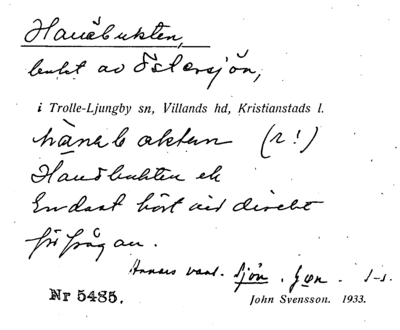 Hanöbukten,
bukt av Östersjön,
i Trolle-Ljungby sn, Villands hd, Kristianstads l.
(r!)
Hanöbukten ek
Endast hört vid direkt
förfrågan.
Annars vanl. sjön.
Nr 5485.
John Svensson. 1933.